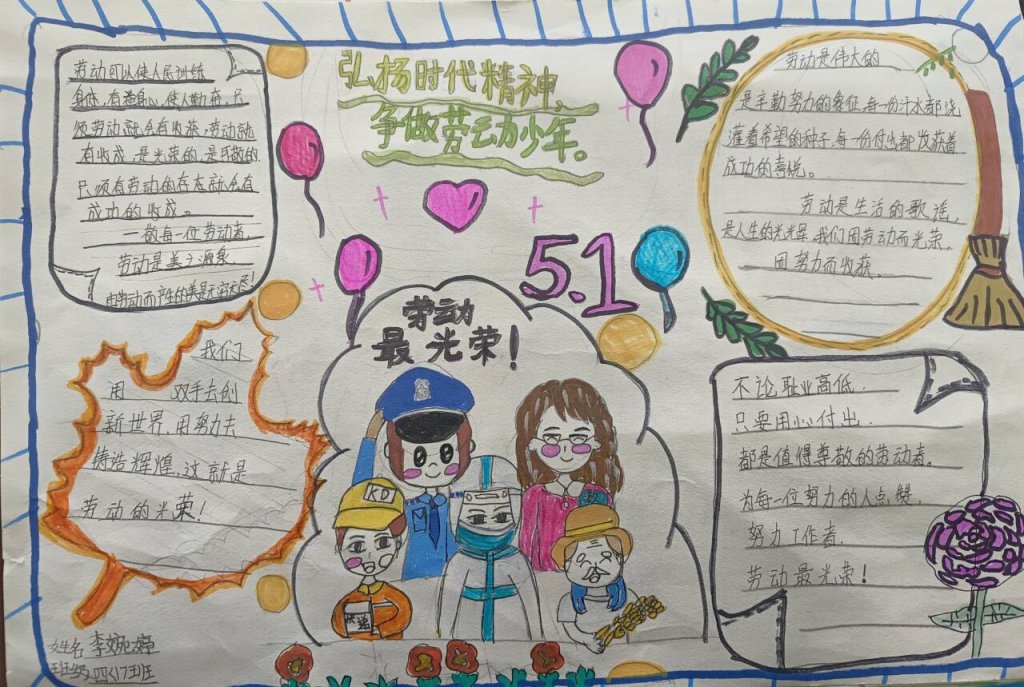 弘扬时代精神,
争做劳动少年。
劳动可以使人民训练
身体,有益身心,使人勤奋,只
有收成,是光荣的,是
只须有劳动的存在就会有
成功的收成。
一敬每一位劳动者.
劳动是美之源泉
劳动是伟大的
是辛勤努力的象征,每一份汁水都浇
灌着希望的种子,每一份付出都收获着
成功的喜悦。
劳动是生活的歌谣,
是人生的光辉,我们因劳动而光荣,
因努力而收获.
5.1
劳动
最光荣!
KD
快递
我们
用 双手去创
新世界,用努力去
铸浩辉煌,这就是
劳动的光荣!
不论职业高低.
只要用心付出.
都是值得尊敬的劳动者。
为每一位努力的人点赞.
努力工作者.
劳动最光荣!
姓名 李婉婷
班级